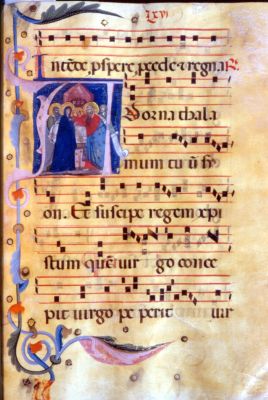 LXVI
Intēde, pspere, pcede & regna R.
Adorna thala
mum tuū sy
on. Et suscipe regem xpi
stum quē uir go conce
pit uirgo pe perit uir